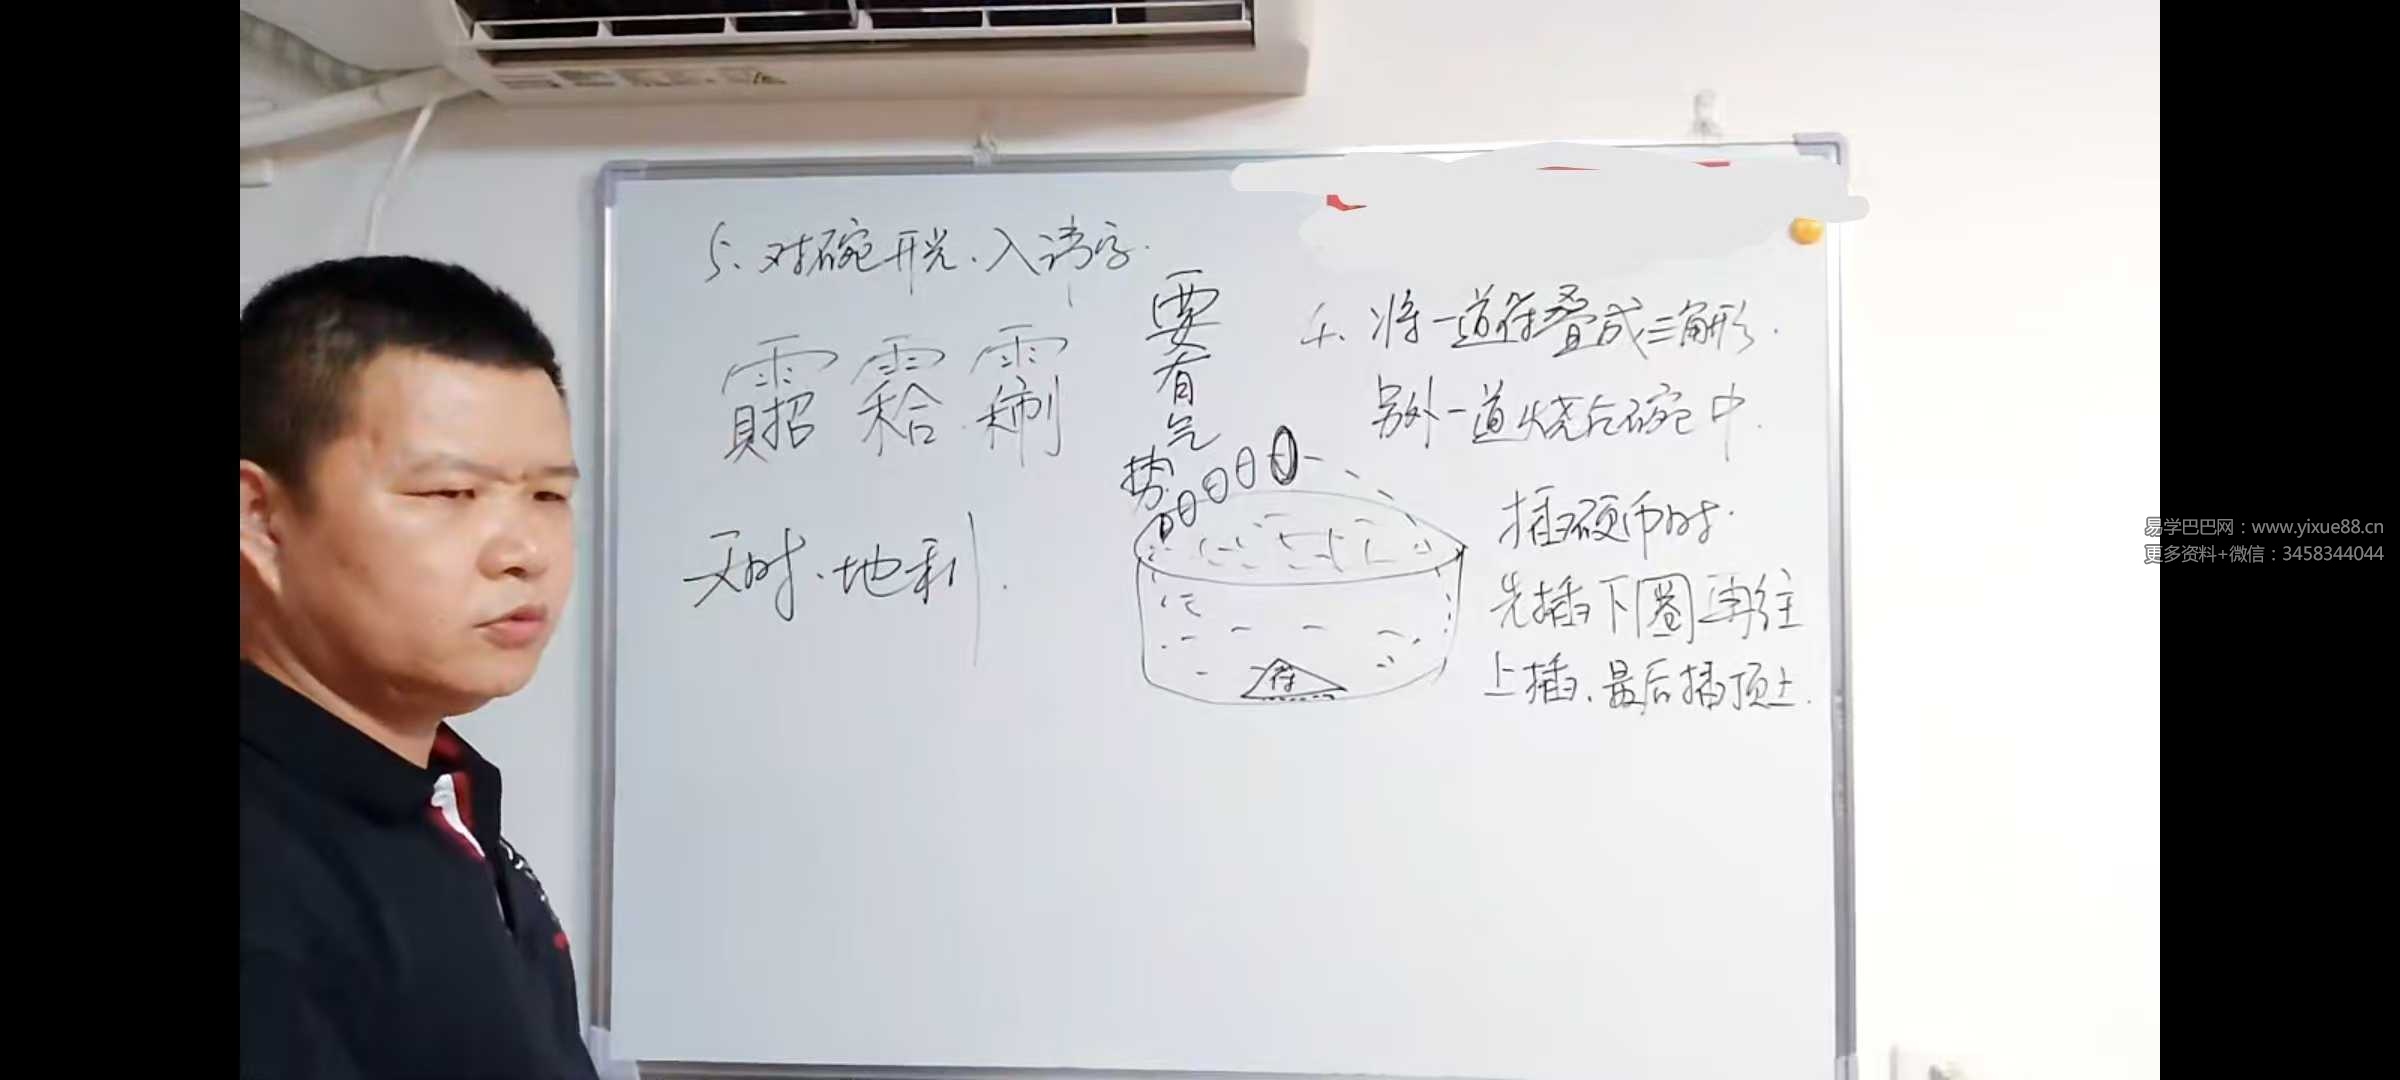 5、对碗开光、入讳字.
要有气势
天时、地利.
4、将一道符叠成三角形.
另外一道烧后碗中.
符
插硬币时.
先插下圈再往
上插、最后插顶上.
易学巴巴网：www.yixue88.cn
更多资料+微信：3458344044